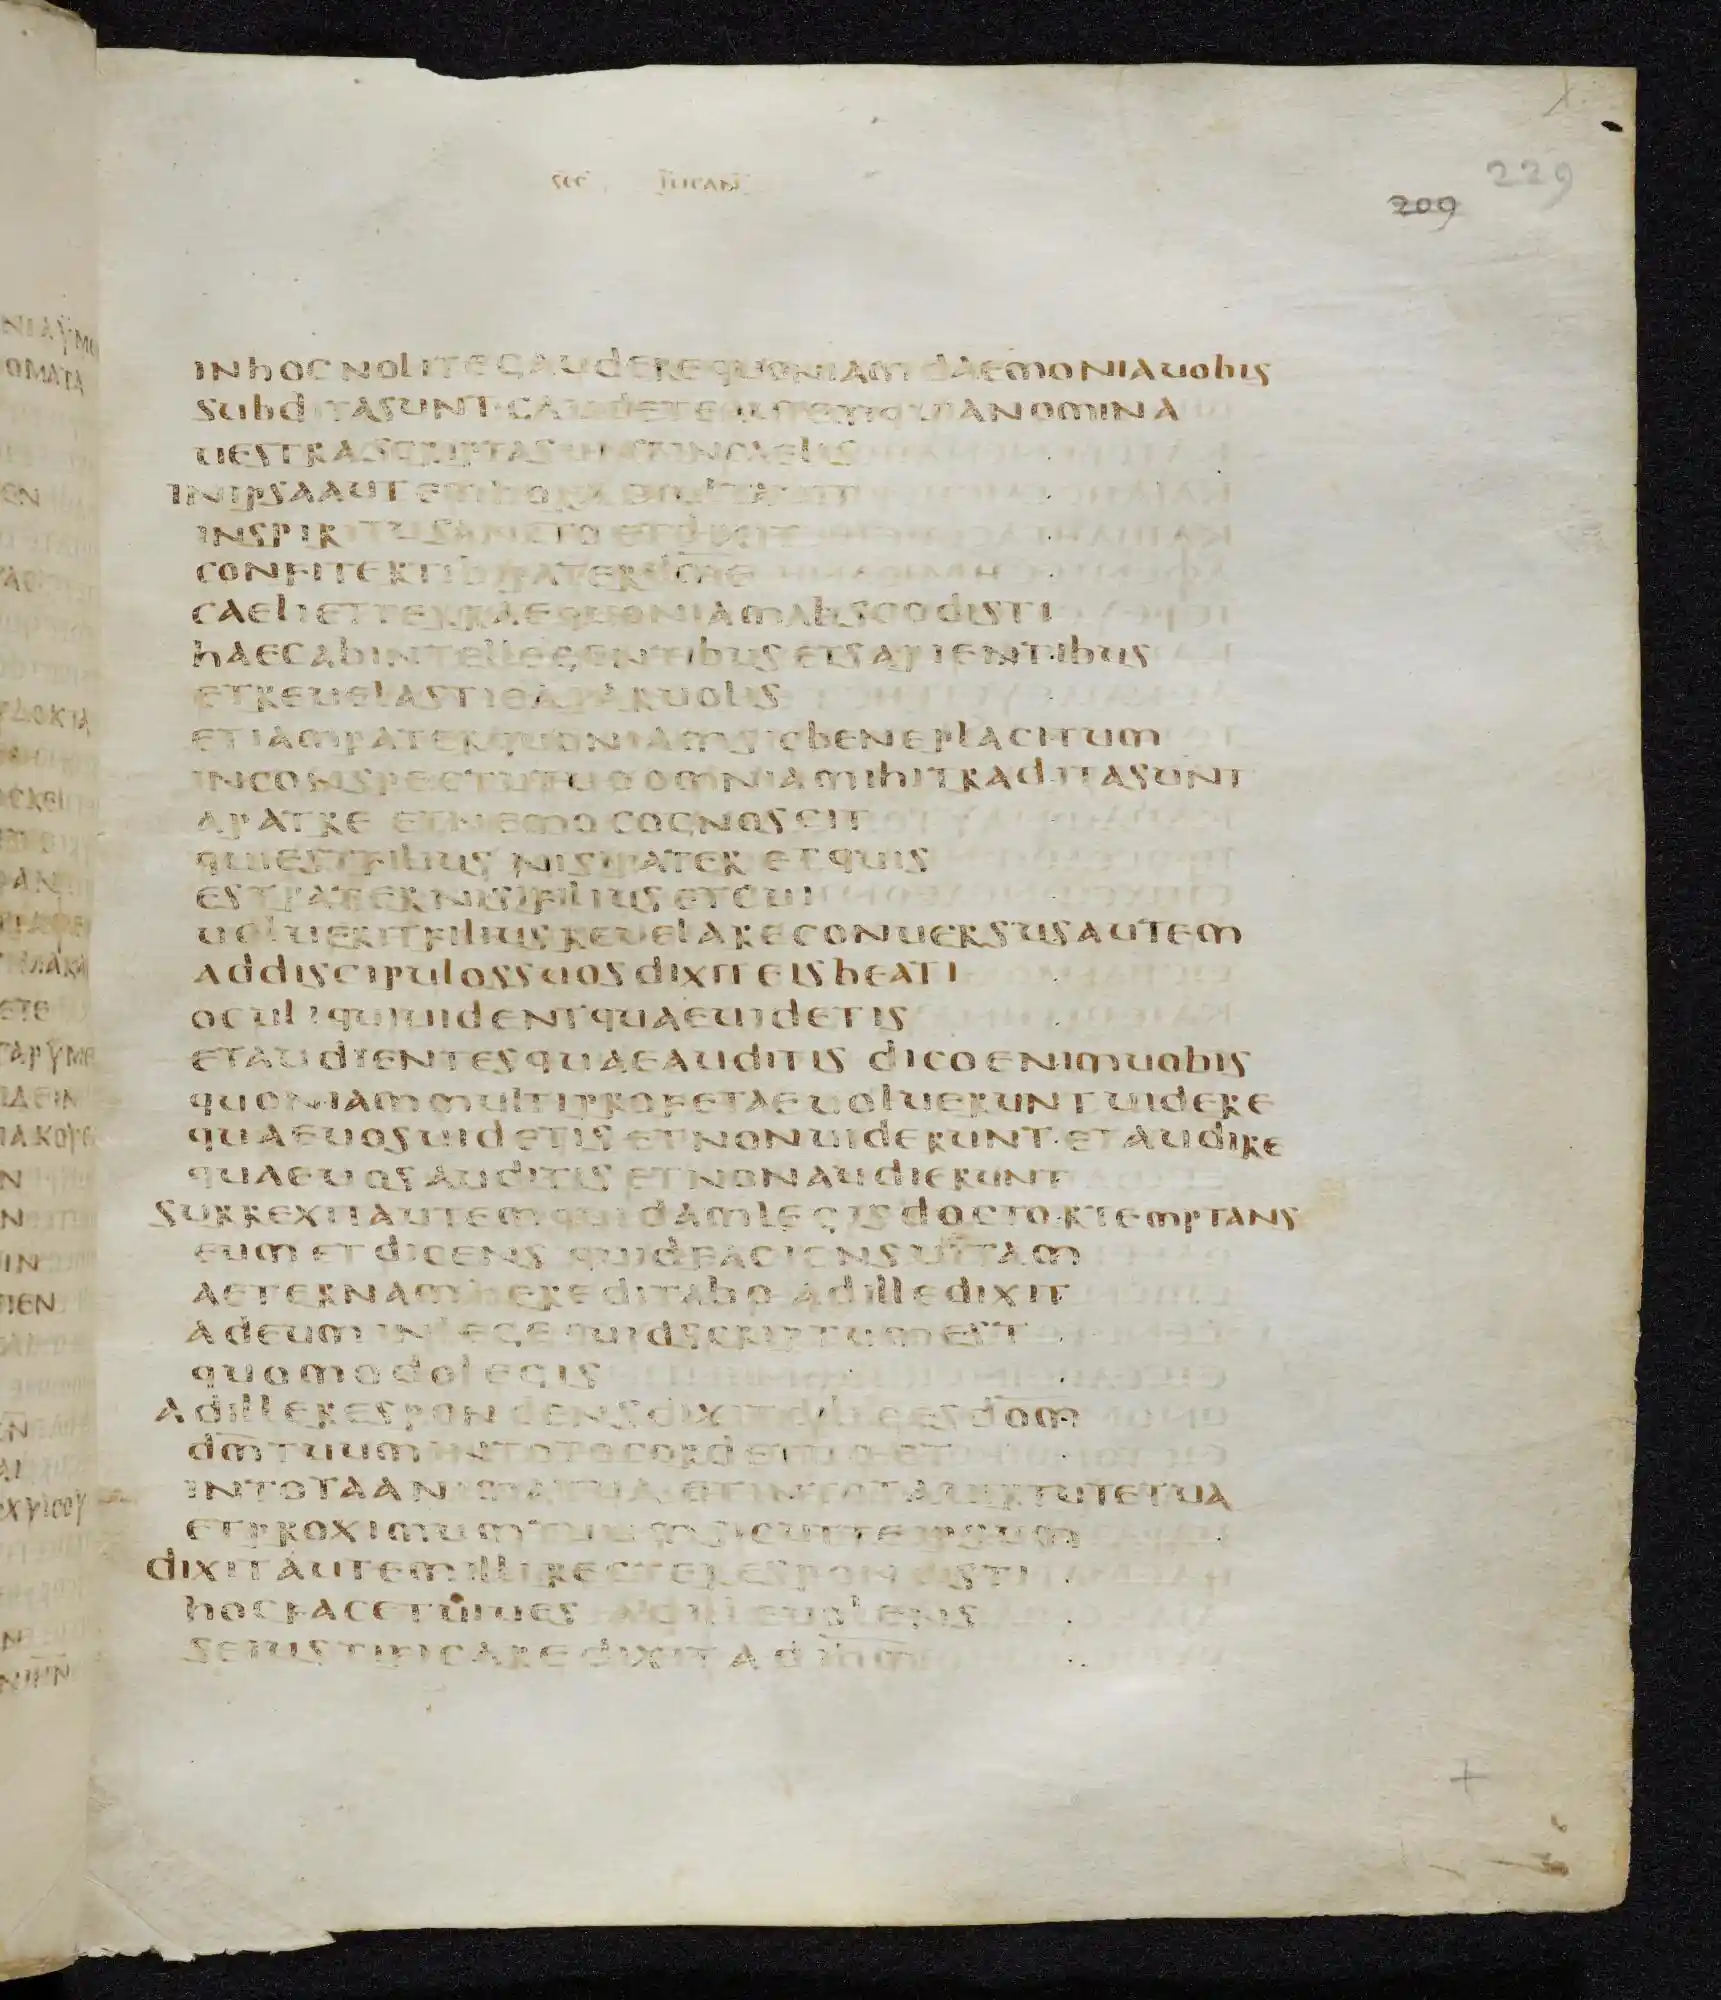 sec lucan
229
209
in hoc nolite gaudere quoniam daemonia uobis
subdita sunt gaudete autem quia nomina
uestra scripta sunt in caelis
in ipsa autem hora exultauit
in spiritu sancto et dixit
confiteor tibi pater dme
caeli et terrae quoniam abscodisti
haec ab intellegentibus et sapientibus
et reuelasti ea paruolis
etiam pater quoniam sic beneplacitum
in conspectu tuo omnia mihi tradita sunt
a patre et nemo cognoscit
qui est filius nisi pater et quis
est pater nisi filius et cui
uoluerit filius reuelare conuersus autem
ad discipulos suos dixit eis beati
oculi qui uident quae uidetis
et audientes quae auditis dico enim uobis
quoniam multi profetae uoluerunt uidere
quae uos uidetis et non uiderunt et audire
quae uos auditis et non audierunt
surrexit autem quidam legis doctor temptans
eum et dicens quid faciens uitam
aeternam hereditabo ad ille dixit
ad eum in lege quid scriptum est
quomodo legis
ad ille respondens dixit diliges dom
dm tuum in toto corde tuo et
in tota anima tua et in tota uirtute tua
et proximum tuum sicut te ipsum
dixit autem illi recte respondisti
hoc fac et uiues ad ille uolens
se iustificare dixit ad ihm